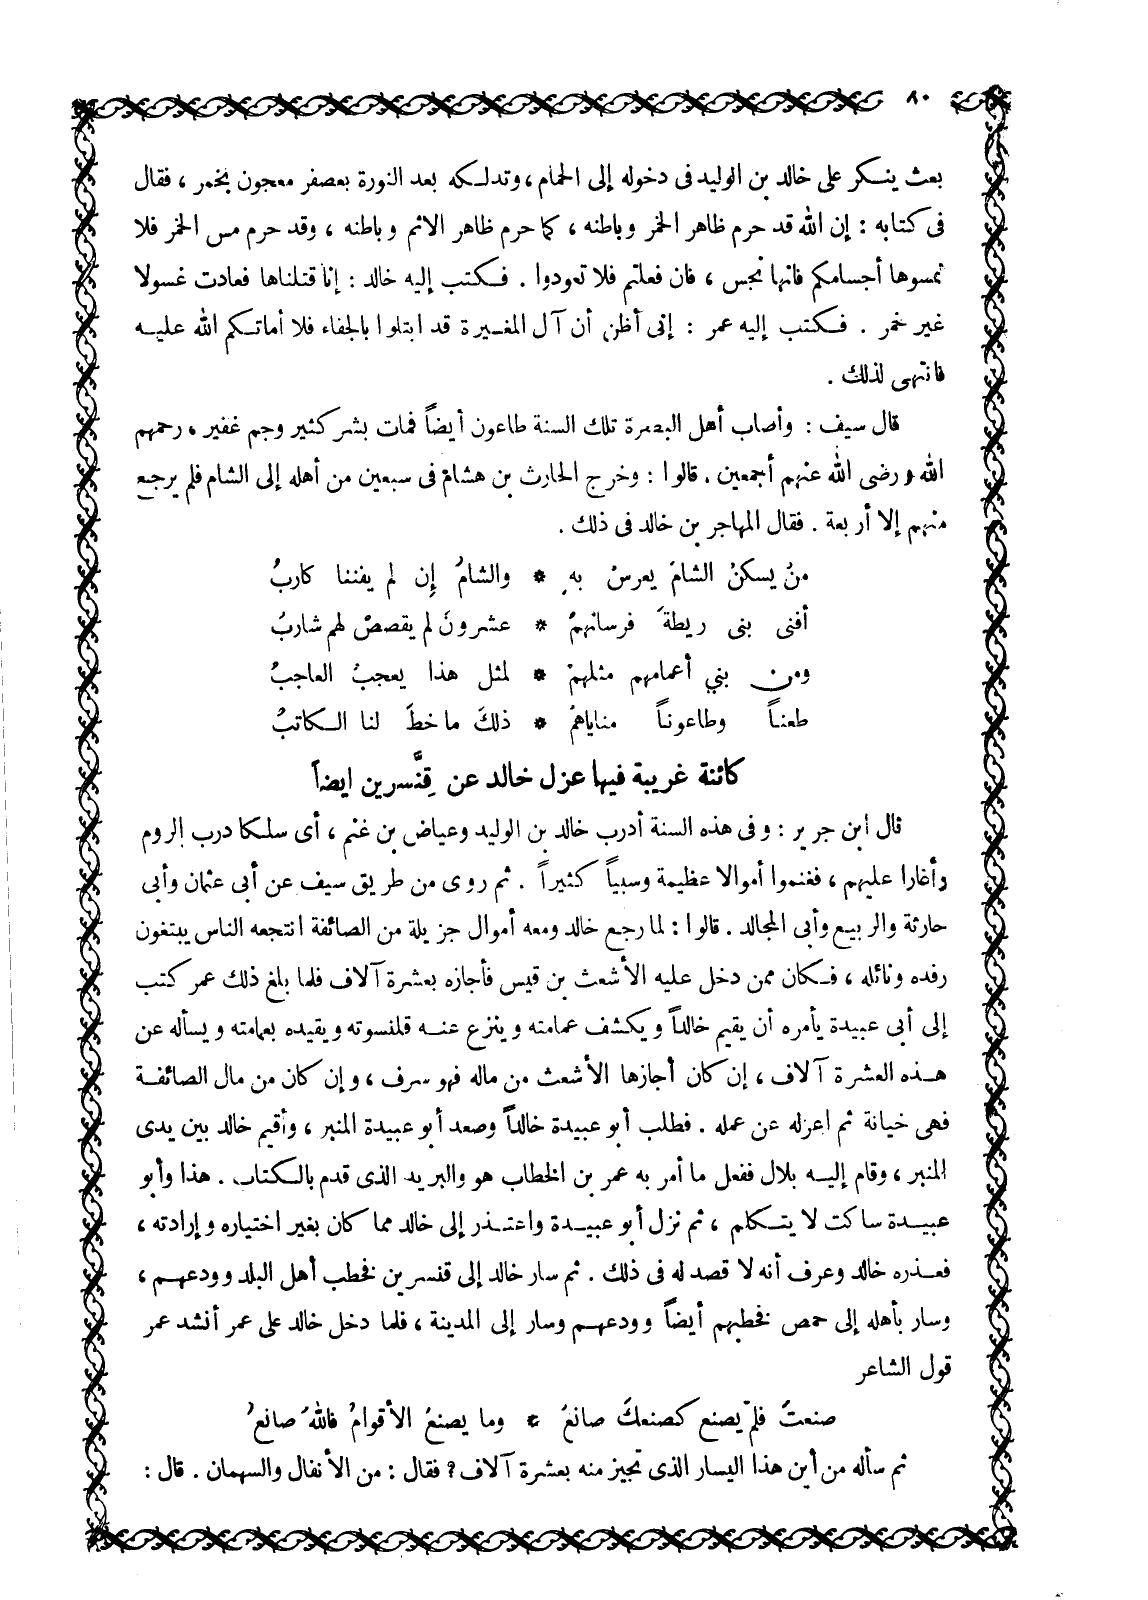 ٨٠
بعث ينكر على خالد بن الوليد فى دخوله إلى الحمام، وتدلكه بعد النورة بعصفر معجون بخمر، فقال
فى كتابه : إن الله قد حرم ظاهر الخمر وباطنه، كما حرم ظاهر الاثم وباطنه، وقد حرم مس الخمر فلا
تمسوها أجسامكم فانها نجس، فان فعلتم فلا تعودوا . فكتب إليه خالد : إنا قتلناها فعادت غسولا
غير خمر . فكتب إليه عمر : إنى أظن أن آل المغيرة قد ابتلوا بالجفاء فلا أماتكم الله عليه
فانتهى لذلك .
قال سيف : وأصاب أهل البصرة تلك السنة طاعون أيضاً فمات بشر كثير وجم غفير، رحمهم
الله ورضى الله عنهم أجمعين . قالوا : وخرج الحارث بن هشام فى سبعين من أهله إلى الشام فلم يرجع
منهم إلا أربعة . فقال المهاجر بن خالد فى ذلك .
منْ يسكنْ الشامَ يعرسْ بهِ * والشامُ إن لم يفننا كاربُ
أفنى بنى ريطةَ فرسانهمْ * عشرونَ لم يقصصْ لهم شاربُ
ومن بني أعمامهم مثلهمْ * لمثل هذا يعجبُ العاجبُ
طعناً وطاعوناً مناياهمْ * ذلكَ ما خطَ لنا الكاتبُ
كائنة غريبة فيها عزل خالد عن قِنَّسرين ايضاً
قال ابن جرير : وفى هذه السنة أدرب خالد بن الوليد وعياض بن غنم، أى سلكا درب الروم
وأغارا عليهم، فغنموا أموالا عظيمة وسبياً كثيراً . ثم روى من طريق سيف عن أبى عثمان وأبى
حارثة والربيع وأبى المجالد . قالوا : لما رجع خالد ومعه أموال جزيلة من الصائفة انتجعه الناس يبتغون
رفده ونائله، فكان ممن دخل عليه الأشعث بن قيس فأجازه بعشرة آلاف فلما بلغ ذلك عمر كتب
إلى أبى عبيدة يأمره أن يقيم خالداً ويكشف عمامته وينزع عنه قلنسوته ويقيده بعمامته ويسأله عن
هذه العشرة آلاف، إن كان أجازها الأشعث من ماله فهو سرف، وإن كان من مال الصائفة
فهى خيانة ثم اعزله عن عمله . فطلب أبو عبيدة خالداً وصعد أبو عبيدة المنبر، وأقيم خالد بين يدى
المنبر، وقام إليه بلال ففعل ما أمر به عمر بن الخطاب هو والبريد الذى قدم بالكتاب . هذا وأبو
عبيدة ساكت لا يتكلم، ثم نزل أبو عبيدة واعتذر إلى خالد مما كان بغير اختياره وإرادته،
فعذره خالد وعرف أنه لا قصد له فى ذلك . ثم سار خالد إلى قنسرين فخطب أهل البلد وودعهم،
وسار بأهله إلى حمص فخطبهم أيضاً وودعهم وسار إلى المدينة، فلما دخل خالد على عمر أنشد عمر
قول الشاعر
صنعتَ فلمْ يصنع كصنعكَ صانعُ * وما يصنعُ الأقوامُ فاللهُ صانعُ
ثم سأله من أين هذا اليسار الذى تجيز منه بعشرة آلاف؟ فقال : من الأنفال والسهمان . قال :